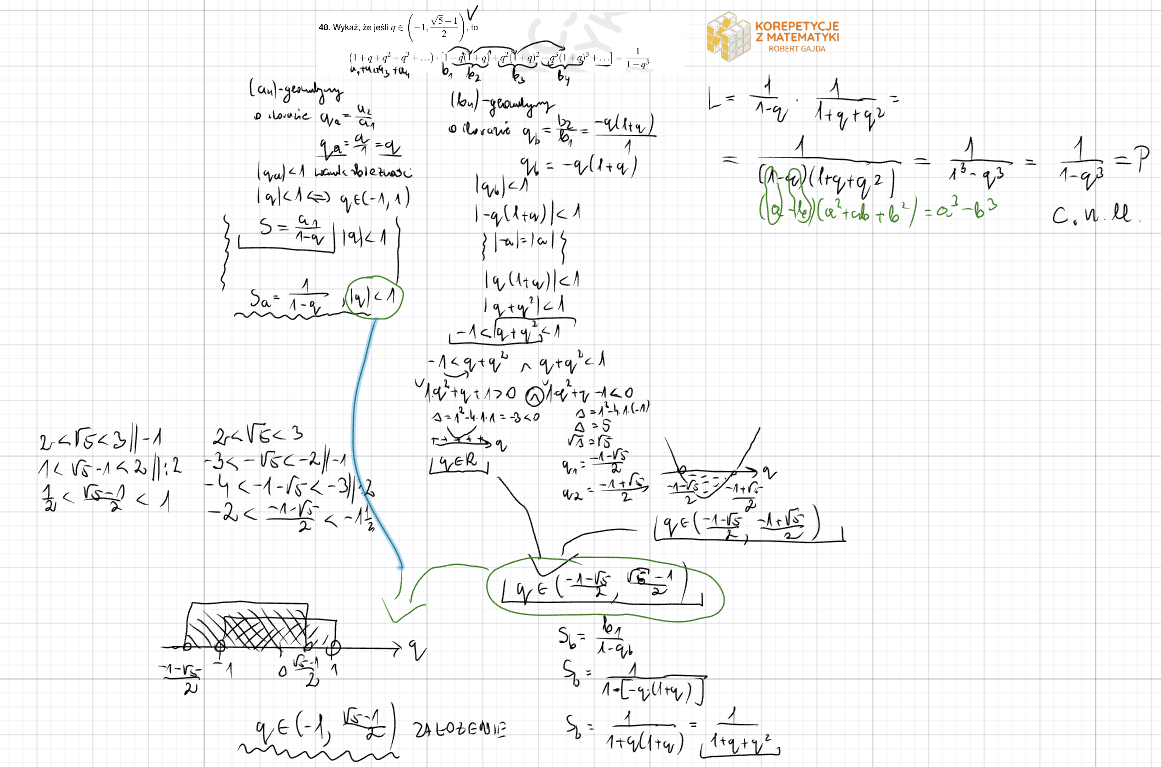 40. Wykaż, że jeśli q ∈ (−1, (√5−1)/2), to
(1+q+q²+q³+…)·[1−q(1+q)+q²(1+q)²−q³(1+q)³+…] = 1/(1−q³)
a₁+a₂+a₃+a₄
b₁ b₂ b₃ b₄
KOREPETYCJE
Z MATEMATYKI
ROBERT GAJDA
(an)-geometryczny
o ilorazie qa = a₂/a₁
qa = q/1 = q
|qa|<1 warunek zbieżności
|q|<1 ⟺ q∈(-1,1)
S = a₁/(1-q) |q|<1
Sa = 1/(1-q), |q|<1
(bn)-geometryczny
o ilorazie qb = b₂/b₁ = -q(1+q)/1
qb = -q(1+q)
|qb|<1
|-q(1+q)|<1
{|-a|=|a|}
|q(1+q)|<1
|q+q²|<1
-1<q+q²<1
-1<q+q² ∧ q+q²<1
1q²+q+1>0 ∧ 1q²+q-1<0
Δ=1²-4·1·1=-3<0
+ + + + q
q∈R
Δ=1²-4·1·(-1)
Δ=5
√Δ=√5
q₁=(-1-√5)/2
q₂=(-1+√5)/2
q
(-1-√5)/2 (-1+√5)/2
q∈((-1-√5)/2, (-1+√5)/2)
q∈((-1-√5)/2, (√5-1)/2)
Sb = b₁/(1-qb)
Sb = 1/(1-[-q·(1+q)])
Sb = 1/(1+q(1+q)) = 1/(1+q+q²)
2<√5<3 ||-1
1<√5-1<2 ||:2
1/2 < (√5-1)/2 < 1
2<√5<3
-3<-√5<-2 ||-1
-4<-1-√5<-3 ||:2
-2 < (-1-√5)/2 < -1 1/2
q
(-1-√5)/2 -1 0 (√5-1)/2 1
q∈(-1, (√5-1)/2) ZAŁOŻENIE
L = 1/(1-q) · 1/(1+q+q²) =
= 1/((1-q)(1+q+q²)) = 1/(1³-q³) = 1/(1-q³) = P
(a-b)(a²+ab+b²)=a³-b³
c.n.u.